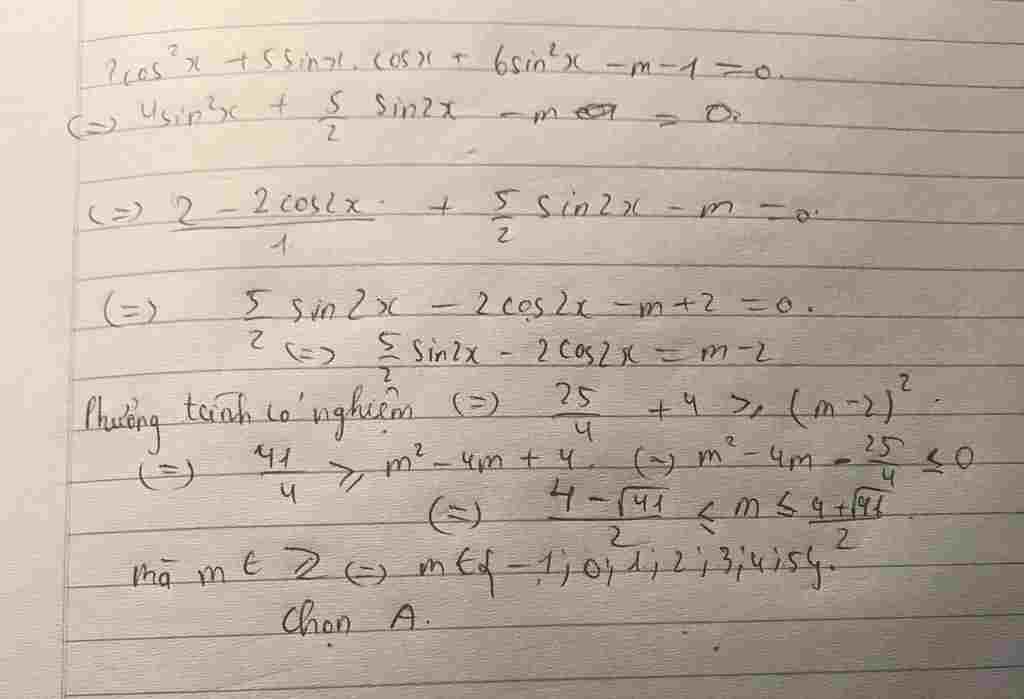 2cos²x + 5sinx.cosx + 6sin²x - m - 1 = 0.
(=) 4sin²x + 5/2 sin2x - m = 0.
(=) (2 - 2cos2x)/1 + 5/2 sin2x - m = 0.
(=) 5/2 sin2x - 2cos2x - m + 2 = 0.
(=) 5/2 sin2x - 2cos2x = m - 2
Phương trình có nghiệm (=) 25/4 + 4 ≥ (m - 2)².
(=) 41/4 ≥ m² - 4m + 4. (=) m² - 4m - 25/4 ≤ 0
(=) (4 - √41)/2 ≤ m ≤ (4 + √41)/2.
mà m ∈ Z (=) m ∈ { -1; 0; 1; 2; 3; 4; 5}.
Chọn A.